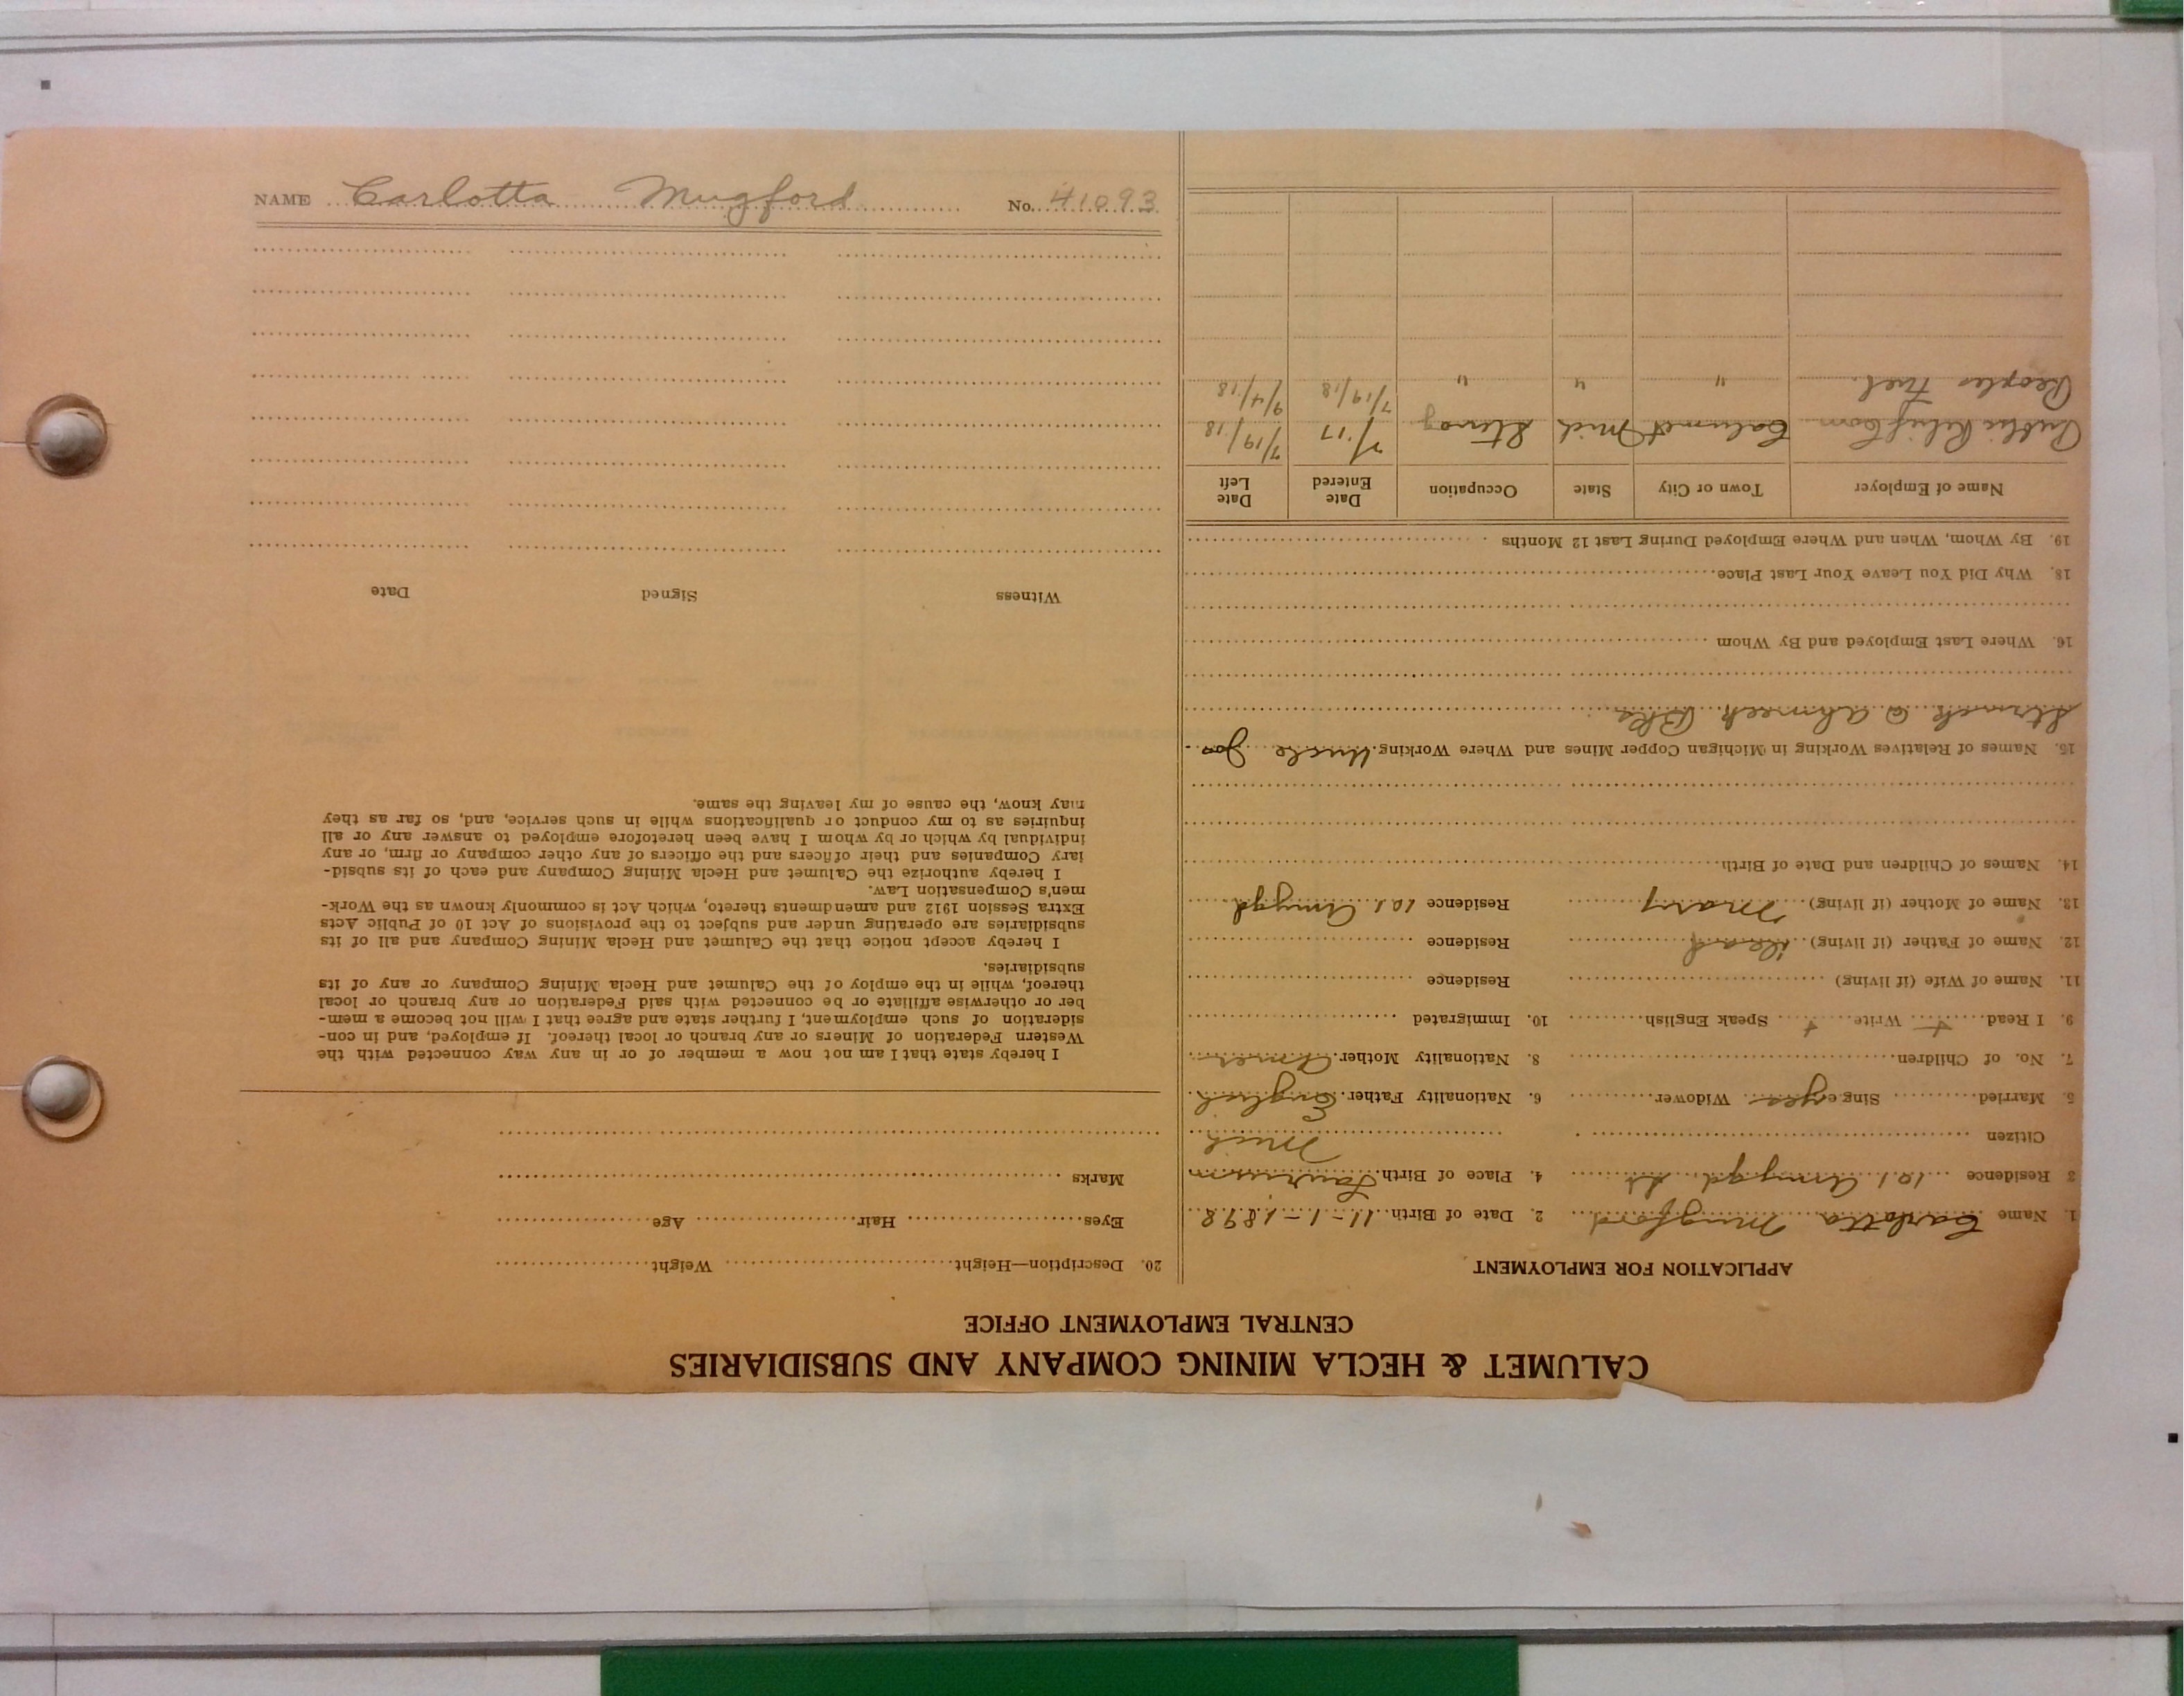 NAME Carlotta Mugford No. 41093
CALUMET & HECLA MINING COMPANY AND SUBSIDIARIES
CENTRAL EMPLOYMENT OFFICE
APPLICATION FOR EMPLOYMENT
1. Name Carlotta Mugford 2. Date of Birth 11-1-1898
3 Residence 101 Amygd. St 4. Place of Birth Laurium
Citizen Mich
5. Married Single yes Widower 6. Nationality Father English
7. No. of Children 8. Nationality Mother Amer
9. I Read + Write + Speak English 10. Immigrated
11. Name of Wife (if living) Residence
12. Name of Father (if living) Dead Residence
13. Name of Mother (if living) Mary Residence 101 Amygd
14. Names of Children and Date of Birth
15. Names of Relatives Working in Michigan Copper Mines and Where Working Uncle Jos
@ Ahmeek Bks
16. Where Last Employed and By Whom
18. Why Did You Leave Your Last Place
19. By Whom, When and Where Employed During Last 12 Months
Name of Employer Town or City State Occupation Date Entered Date Left
Public Relief Com Calumet Mich Stenog 7/17 7/19/18
Peoples Fuel " " " 7/19/18 9/4/18
20. Description—Height Weight
Eyes Hair Age
Marks
I hereby state that I am not now a member of or in any way connected with the
Western Federation of Miners or any branch or local thereof. If employed, and in con-
sideration of such employment, I further state and agree that I will not become a mem-
ber or otherwise affiliate or be connected with said Federation or any branch or local
thereof, while in the employ of the Calumet and Hecla Mining Company or any of its
subsidiaries.
I hereby accept notice that the Calumet and Hecla Mining Company and all of its
subsidiaries are operating under and subject to the provisions of Act 10 of Public Acts
Extra Session 1912 and amendments thereto, which Act is commonly known as the Work-
men's Compensation Law.
I hereby authorize the Calumet and Hecla Mining Company and each of its subsid-
iary Companies and their officers and the officers of any other company or firm, or any
individual by which or by whom I have been heretofore employed to answer any or all
inquiries as to my conduct or qualifications while in such service, and, so far as they
may know, the cause of my leaving the same.
Witness Signed Date